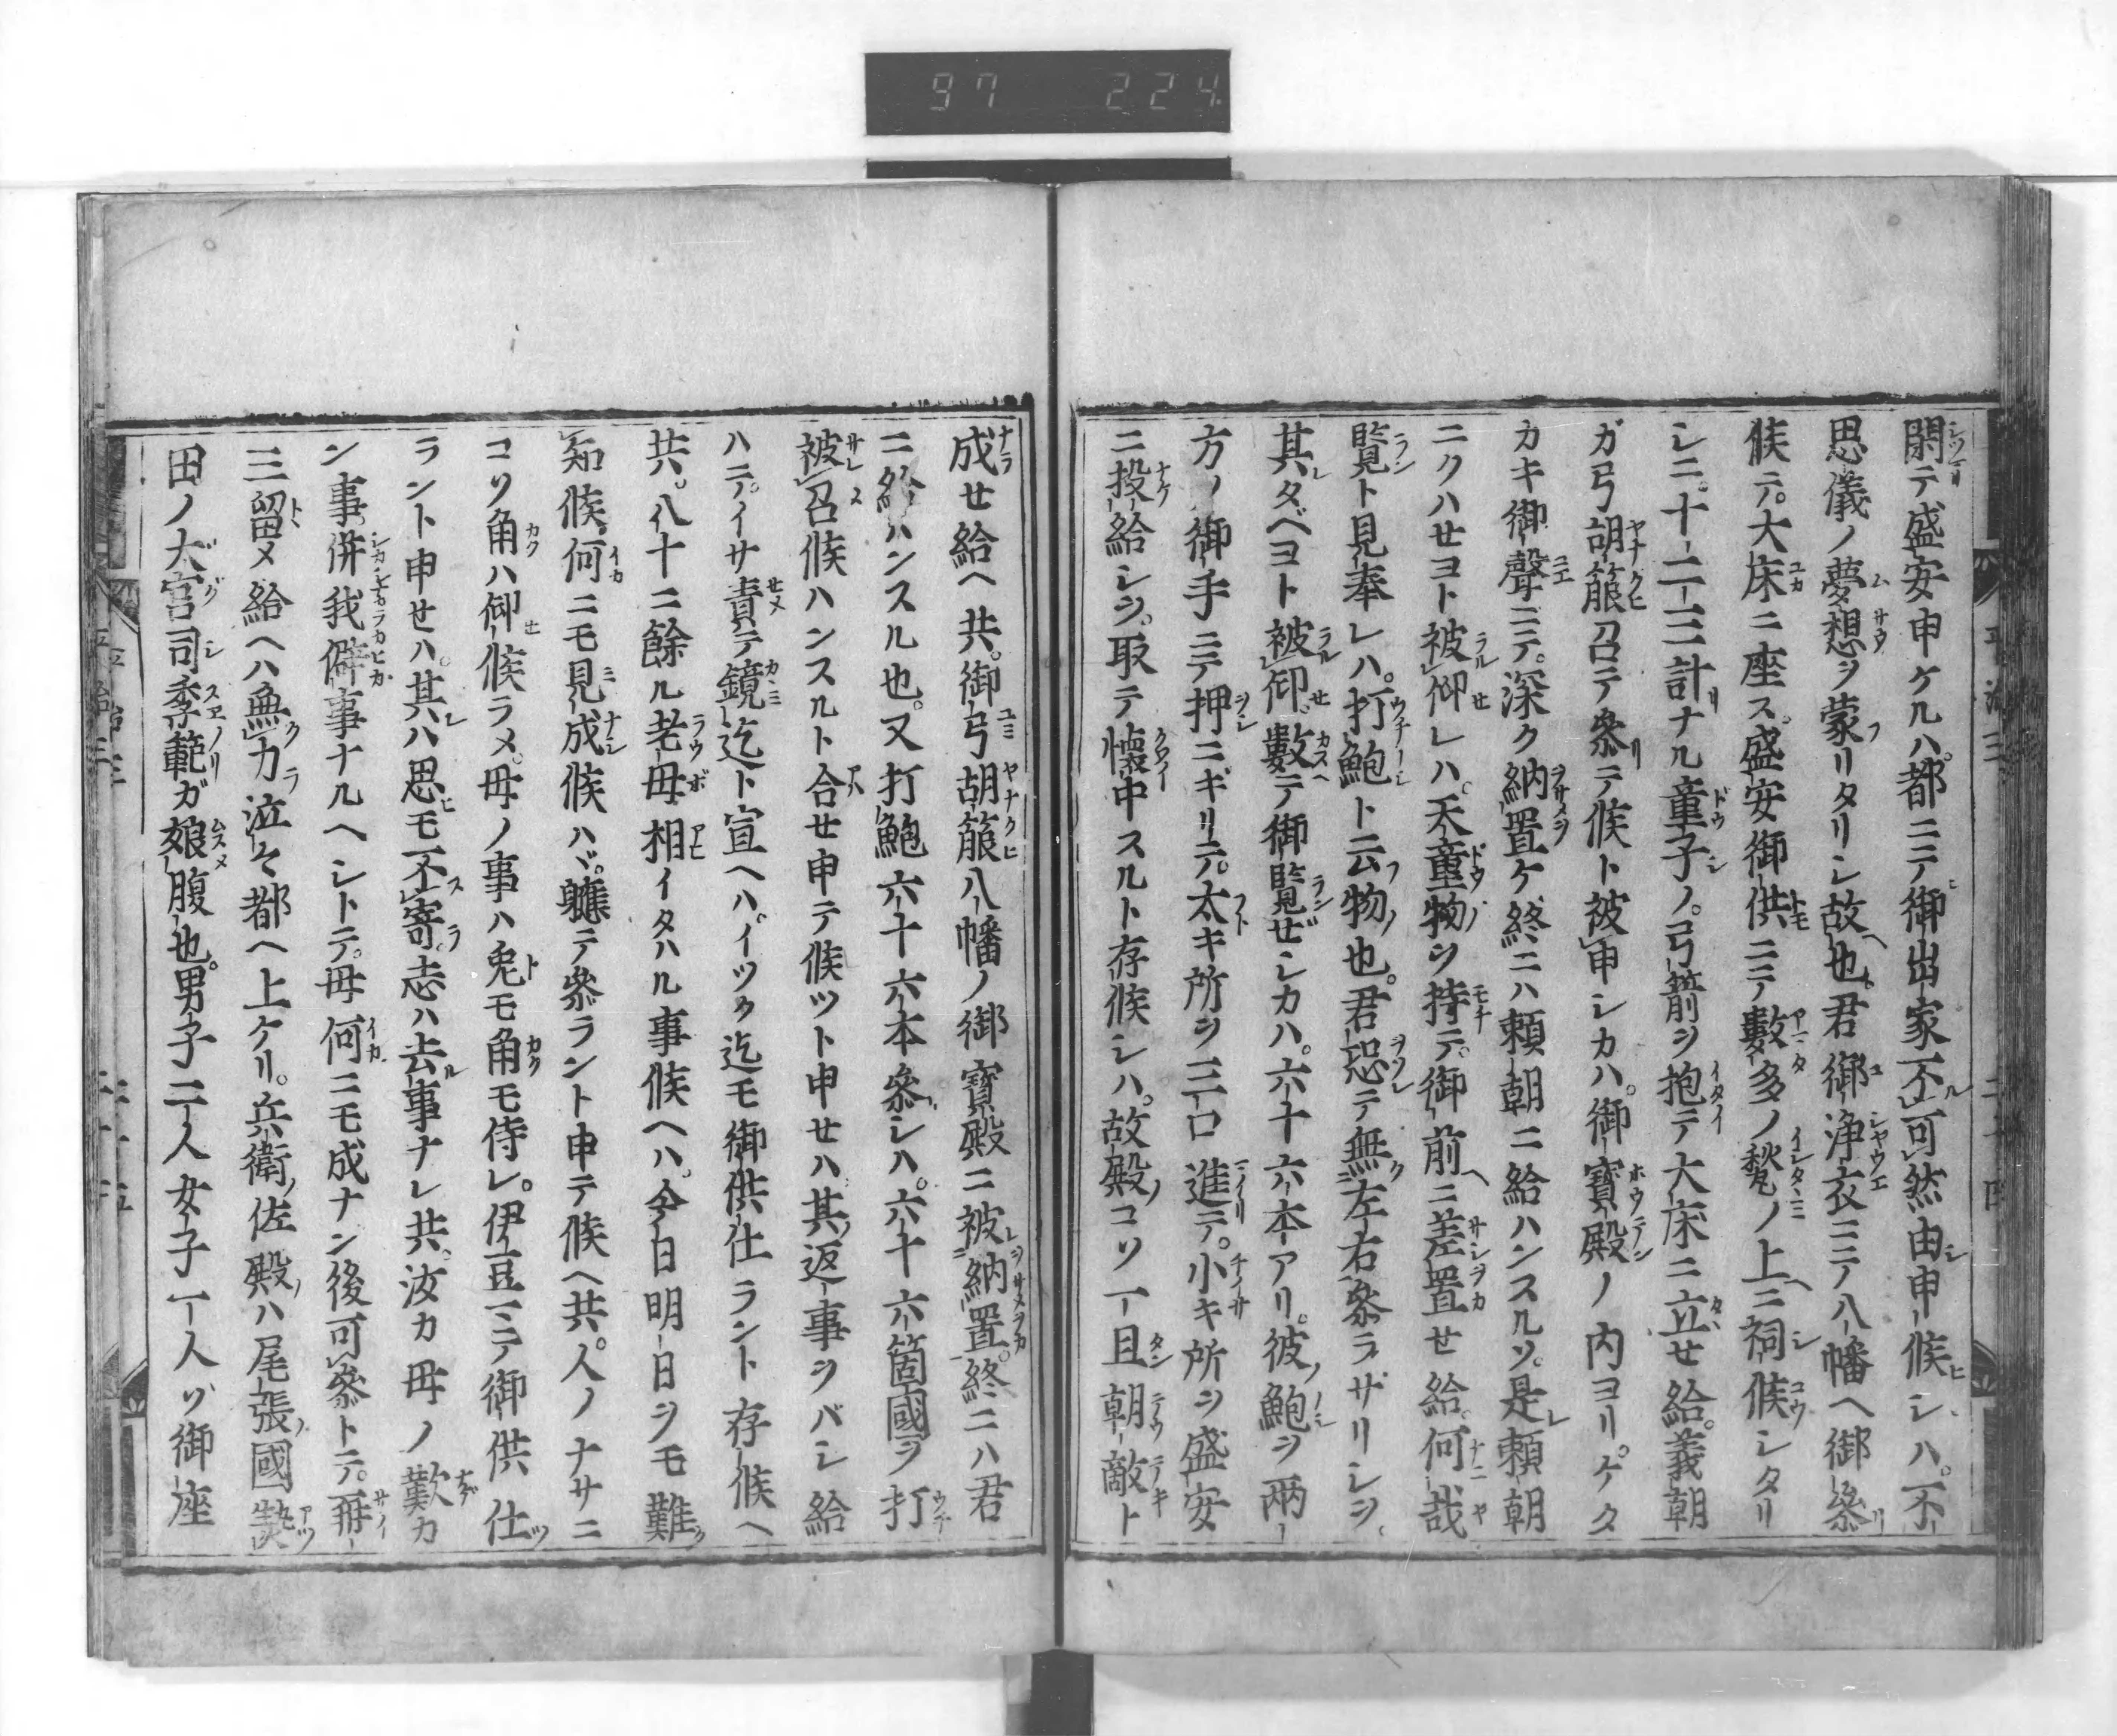 97 224
閑テ盛安申ケルハ。都ニテ御出家不可然由申候シハ。不
思儀ノ夢想ヲ蒙リタリシ故也。君御浄衣ニテ八幡ヘ御參
候テ。大床ニ座ス。盛安御供ニテ數多ノ甃ノ上ニ祠候シタリ
シニ。十二三計ナル童子ノ。弓箭ヲ抱テ大床ニ立セ給。義朝
ガ弓胡籙召テ參テ候ト被申シカハ。御寶殿ノ内ヨリ。ケタ
カキ御聲ニテ。深ク納置ケ終ニハ頼朝ニ給ハンスルソ。是頼朝
ニクハセヨト被仰レハ。天童物ヲ持テ。御前ニ差置せ給。何哉
覽ト見奉レハ。打鮑ト云物也。君恐テ無左右參ラザリシヲ。
其タベヨト被仰。數テ御覽ぜシカハ。六十六本アリ。彼鮑ヲ兩
方ノ御手ニテ押ニギリテ。太キ所ヲ三口進テ。小キ所ヲ盛安
ニ投給シヲ。取テ懐中スルト存候シハ。故殿コソ一旦朝敵ト
成せ給ヘ共。御弓胡籙八幡ノ御寶殿ニ被納置。終ニハ君
ニ給ハンスル也。又打鮑六十六本參シハ。六十六箇國ヲ打
被召候ハンスルト合せ申テ候ツト申せハ。其返事ヲバシ給
ハテ。イサ責テ鏡迄ト宣ヘハ。イツク迄モ御供仕ラント存候ヘ
共。八十ニ餘ル老母相イタハル事候ヘハ。今日明日ヲモ難
知候。何ニモ見成候ハヾ。軈テ參ラント申テ候ヘ共。人ノナサニ
コソ角ハ仰候ラメ。母ノ事ハ兎モ角モ侍レ。伊豆ニテ御供仕
ラント申せハ。其ハ思モ不寄。志ハ去事ナレ共。汝カ母ノ歎カ
ン事。併我僻事ナルヘシトテ。母何ニモ成ナン後可參トテ。再
三留メ給ヘハ無力泣々都ヘ上ケリ。兵衛佐殿ハ尾張國熱
田ノ大宮司季範ガ娘腹也。男子二人女子一人ゾ御座